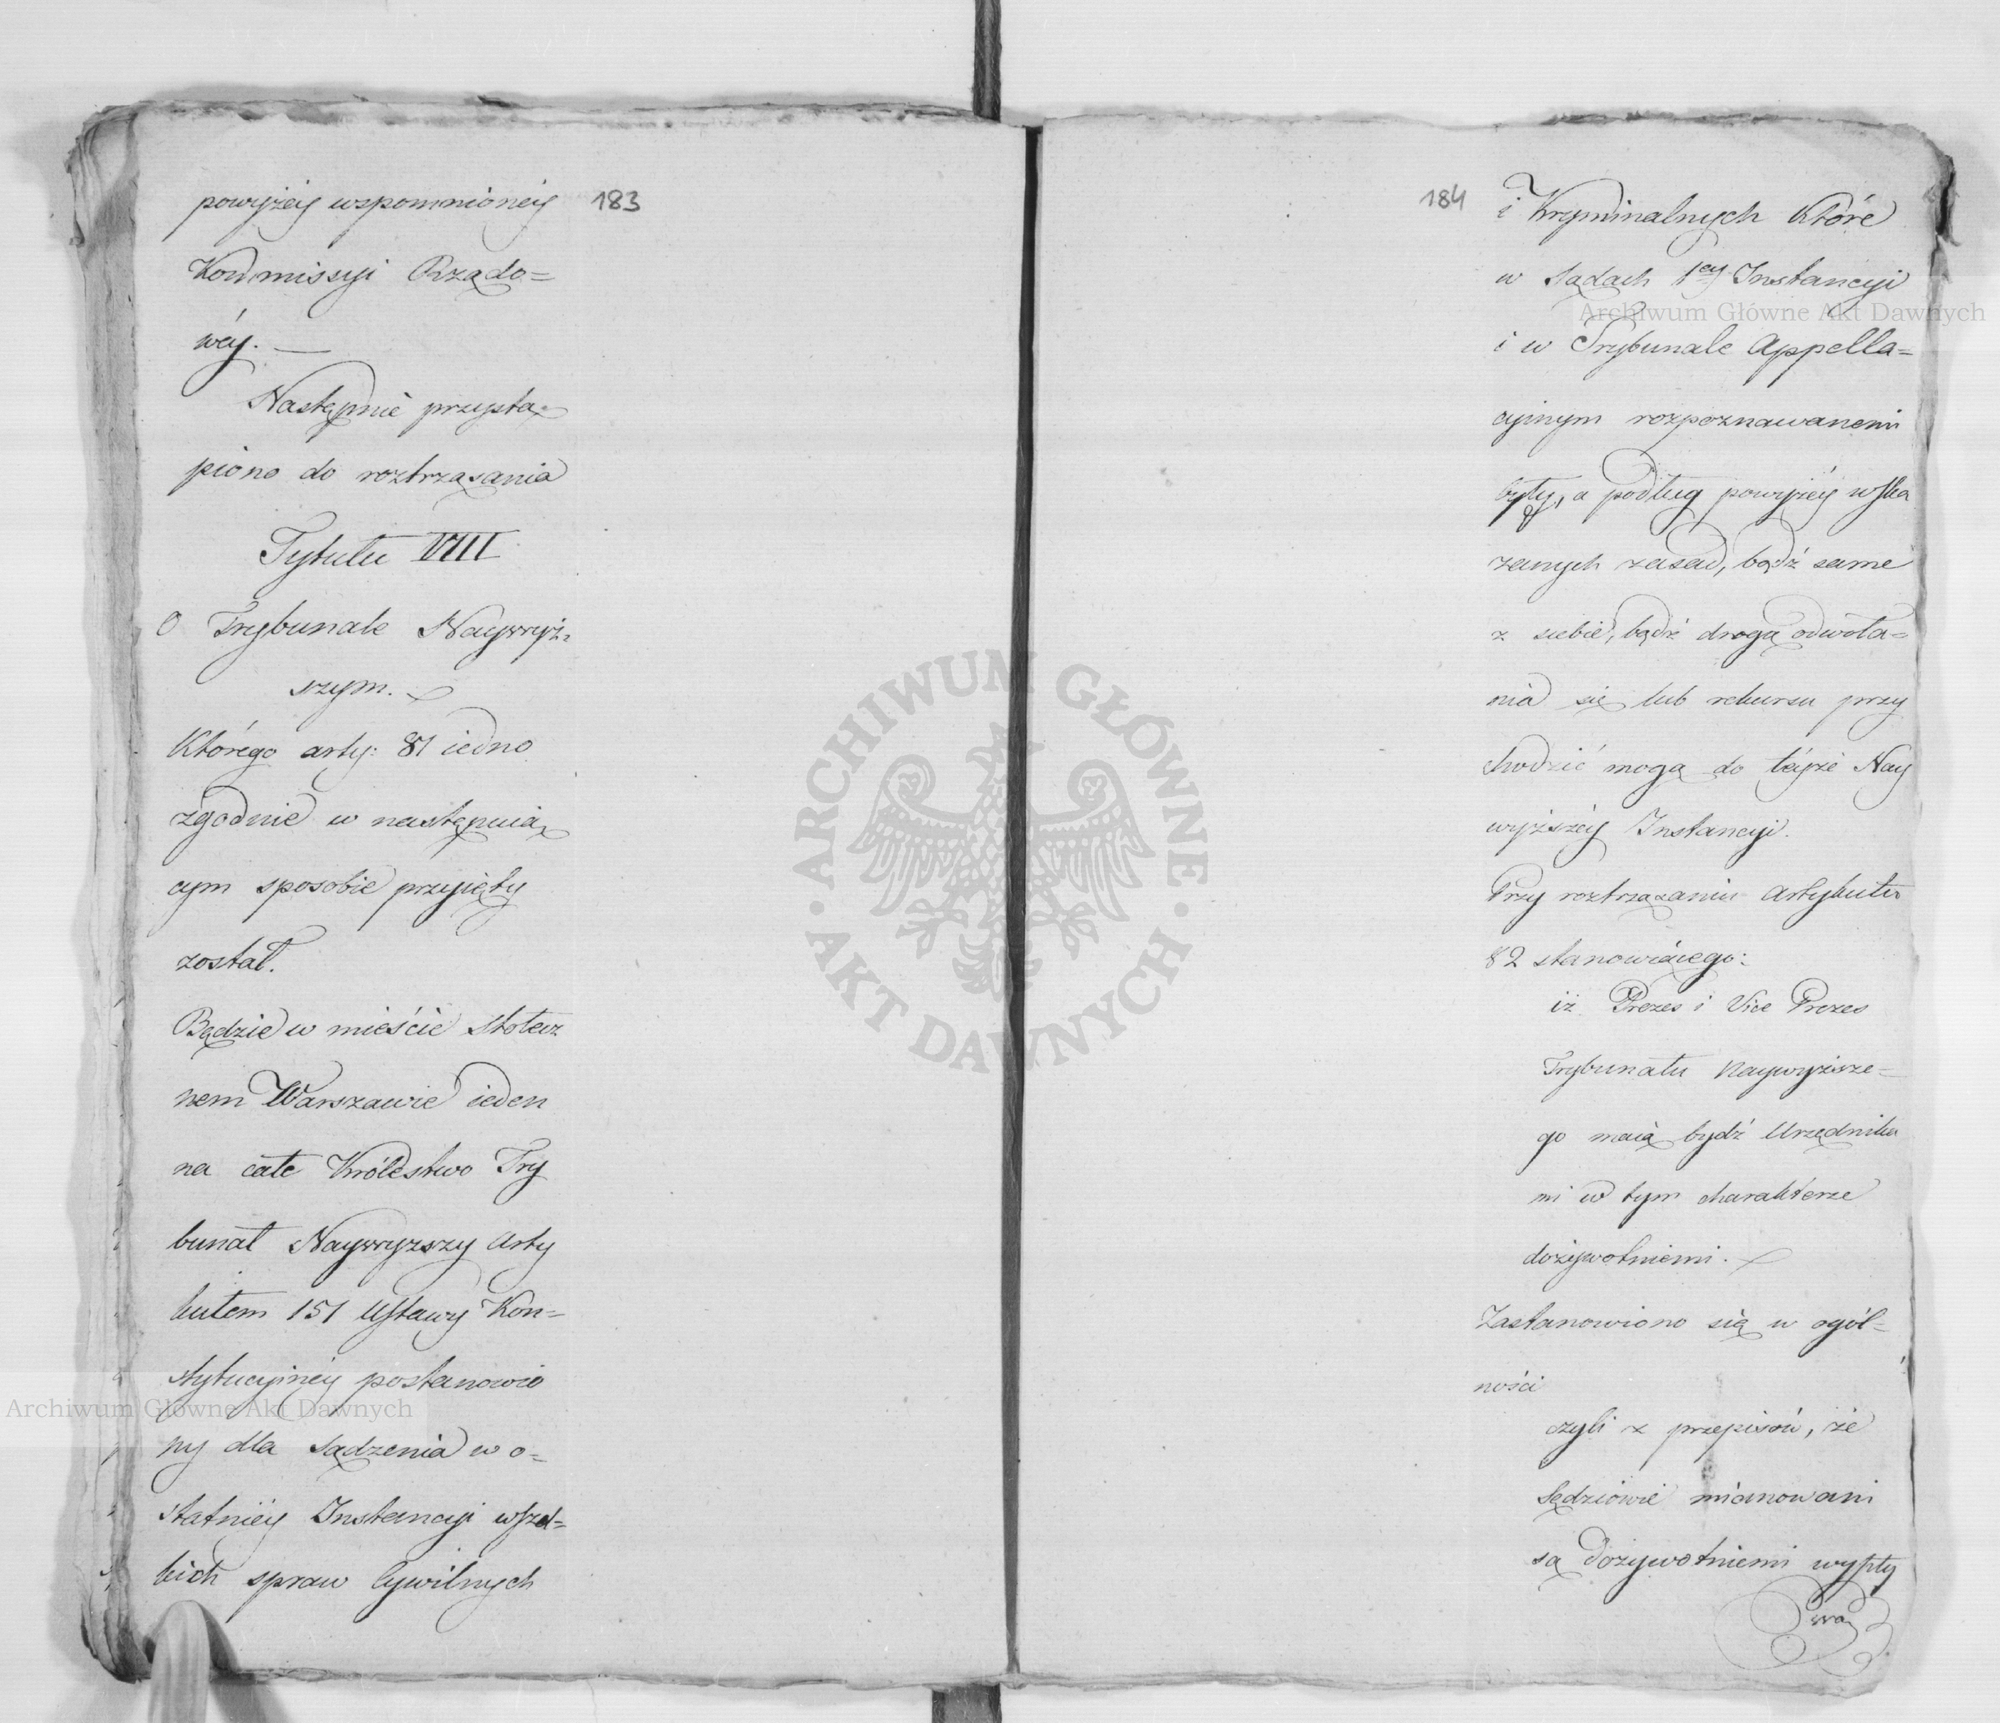 183
powyżéy wspomnionéy
Kommissyi Rządo=
wéy. —
Następnie przystą=
piono do roztrząsania
Tytułu VIII
O Trybunale Naywyż=
szym.
Którego arty: 81 iedno
zgodnie w następuią
cym sposobie przyięty
został.
Będzie w mieście Stołecz
nem Warszawie ieden
na całe Królestwo Try
bunał Naywyższy Arty
kułem 151 Ustawy Kon=
stytucyinéy postanowio
ny dla sądzenia w o=
statniéy Instancyi wszel=
kich spraw Cywilnych
184
i Kryminalnych które
w Sądach 1éy Instancyi
i w Trybunale Appella=
cyinym rozpoznawanemi
były, a podług powyżéy wska
zanych zasad, bądź same
z siebie, bądź drogą odwoła=
nia się lub rekursu przy
chodzić mogą do téyże Nay
wyższéy Instancyi.
Przy roztrząsaniu Artykułu
82 stanowiącego:
iż Prezes i Vice Prezes
Trybunału Naywyższe=
go maią bydź Urzędnika
mi w tym charakterze
dożywotniemi.
Zastanowiono się w ogól=
ności
czyli z przepisów, że
Sędziowie mianowani
są dożywotniemi wypły
wa
Archiwum Główne Akt Dawnych
Archiwum Główne Akt Dawnych
ARCHIWUM GŁÓWNE · AKT DAWNYCH ·